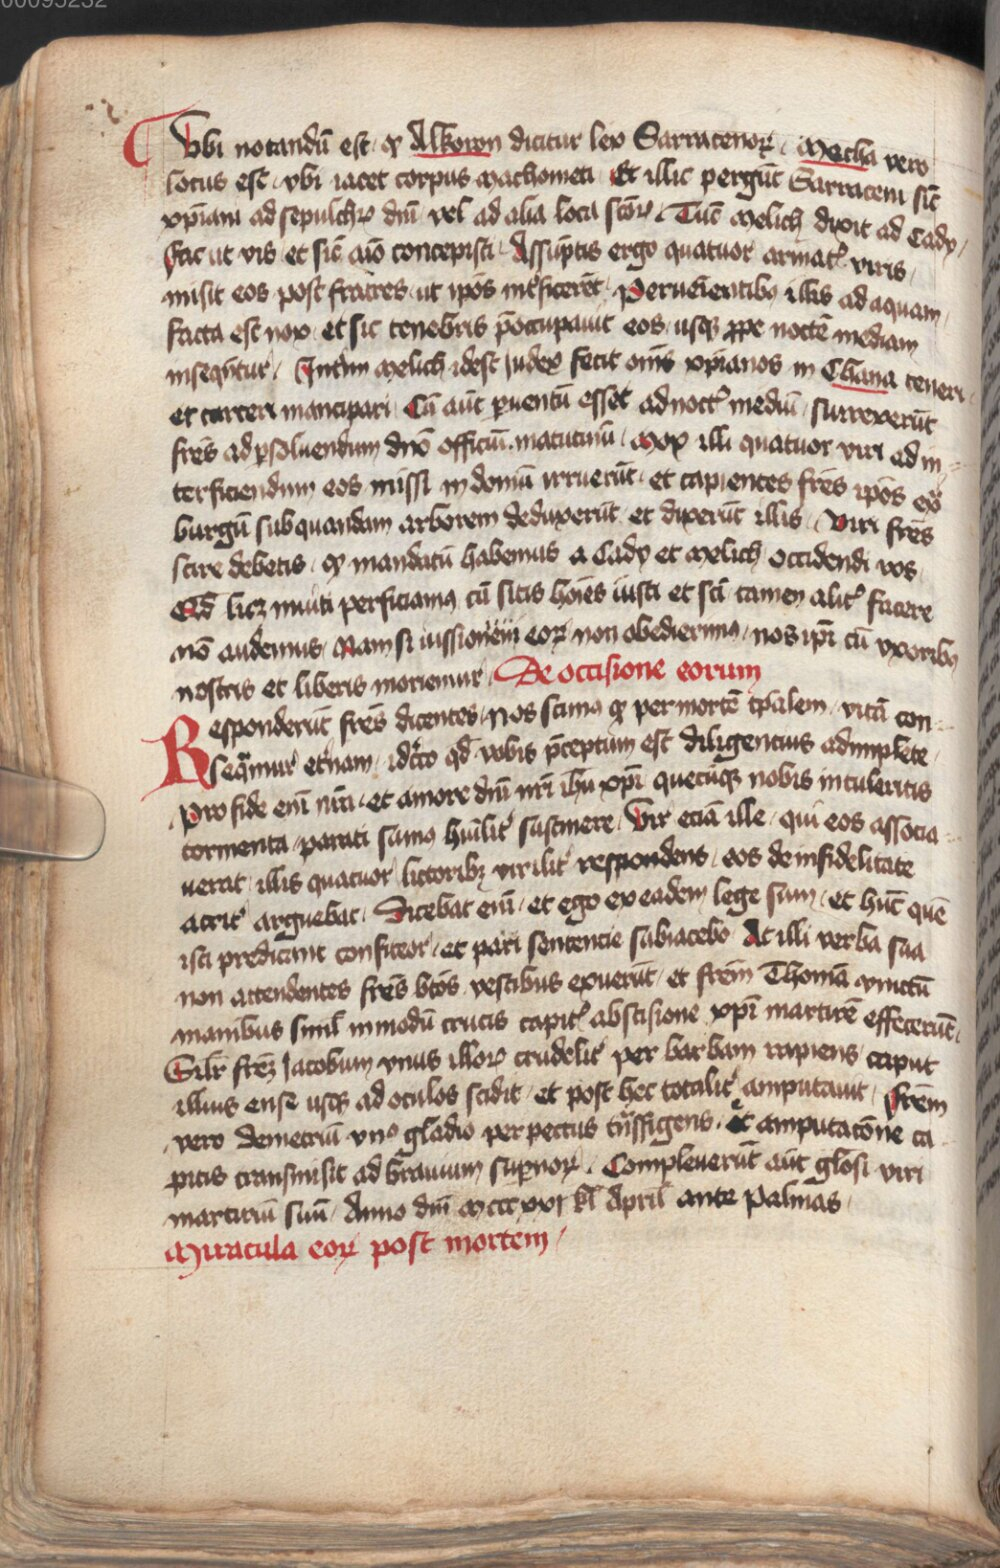 00095232
Vbi notandū est · ꝙ Alkoron dicitur lex Sarracenoꝝ · Mecha vero
locus est · vbi iacet corpus Machometi · Et illic pergūt Sarraceni sic̄
xp̄iani ad sepulchrꝰ dn̄i vel ad alia loca sc̄oꝝ · Tūc Melich dixit ad Cady ·
fac ut vis et sic̄ aīo concepisti · Assūptis ergo quatuor armatꝭ viris ·
misit eos post fratres · ut ip̄os int̓ficerēt · Perueīentibꝰ illis ad aquam ·
facta est nox · et sic tenebris p̄occupauit eos usqꝫ ꝓpe noctē mediam
insequētur · Int̓im Melich idest Judex fecit om̄s xp̄ianos in Chana teneri ·
et carceri mancipari · Cū aūt ꝑuentū esset ad noctꝭ mediū · surrexerūt
fr̄es ad ꝑsoluendum dn̄o officiū matutinū · Mox illi quatuor viri ad in=
terficiendum eos missi in domū irruerūt · et capientes fr̄es ip̄os ex̄
burgū sub quandam arborem deduxerūt et dixerūt illis · Viri fr̄es
scire debetis · ꝙ mandatū habemus a Cady et Melich occidendi vos
Qd̄ licꝫ inuiti perficiamꝰ cū sitis hoīes iusti et sc̄i tamen alit̓ facere
nō audemus · Nam si iussionem eoꝝ non obedierimꝰ · nos ip̄i cū vxoribꝰ
nostris et liberis moriemur · De occisione eorum
Responderūt fr̄es dicentes · Nos scimꝰ ꝙ per mortē tp̄alem · vitā con=
seqͣmur et̓nam · idc̓co qd̄ vobis p̄ceptum est diligencius adimplete ·
Pro fide em̄ nr̄a · et amore dn̄i nr̄i ih̄u xp̄i quecūqꝫ nobis intuleritis
tormenta · parati sumꝰ hūilit̓ sustinere · Vir eciā ille · qui eos associa=
uerat · illis quatuor lictoribꝫ virilit̓ respondens · eos de infidelitate
acrit̓ arguebat · Dicebat em̄ · et ego ex eadem lege sum · et hūc quē
isti predicant confiteor · et pari sentencie subiacebo · At illi verba sua
non attendentes fr̄es btōs vestibus exuerūt · et fr̄em Thomā vinctū
manibus simꝉ in modū crucis capitꝭ abscisione xp̄i martirē effecerūt ·
Silr̄ fr̄eꝫ Jacobum vnus illoꝝ crudelit̓ per barbam rapiens caput
illius ense usqꝫ ad oculos scidit · et post hec totalit̓ amputauit · fr̄em
vero Demetriū vnꝰ gladio per pectus trāsfigens · et amputacōne ca=
pitis transmisit ad brauium suꝑnoꝝ · Compleuerūt aūt glōsi viri
martiriū suū · Anno dn̄i Mccc xxj kł April ante Palmas ·
Miracula eoꝝ post mortem